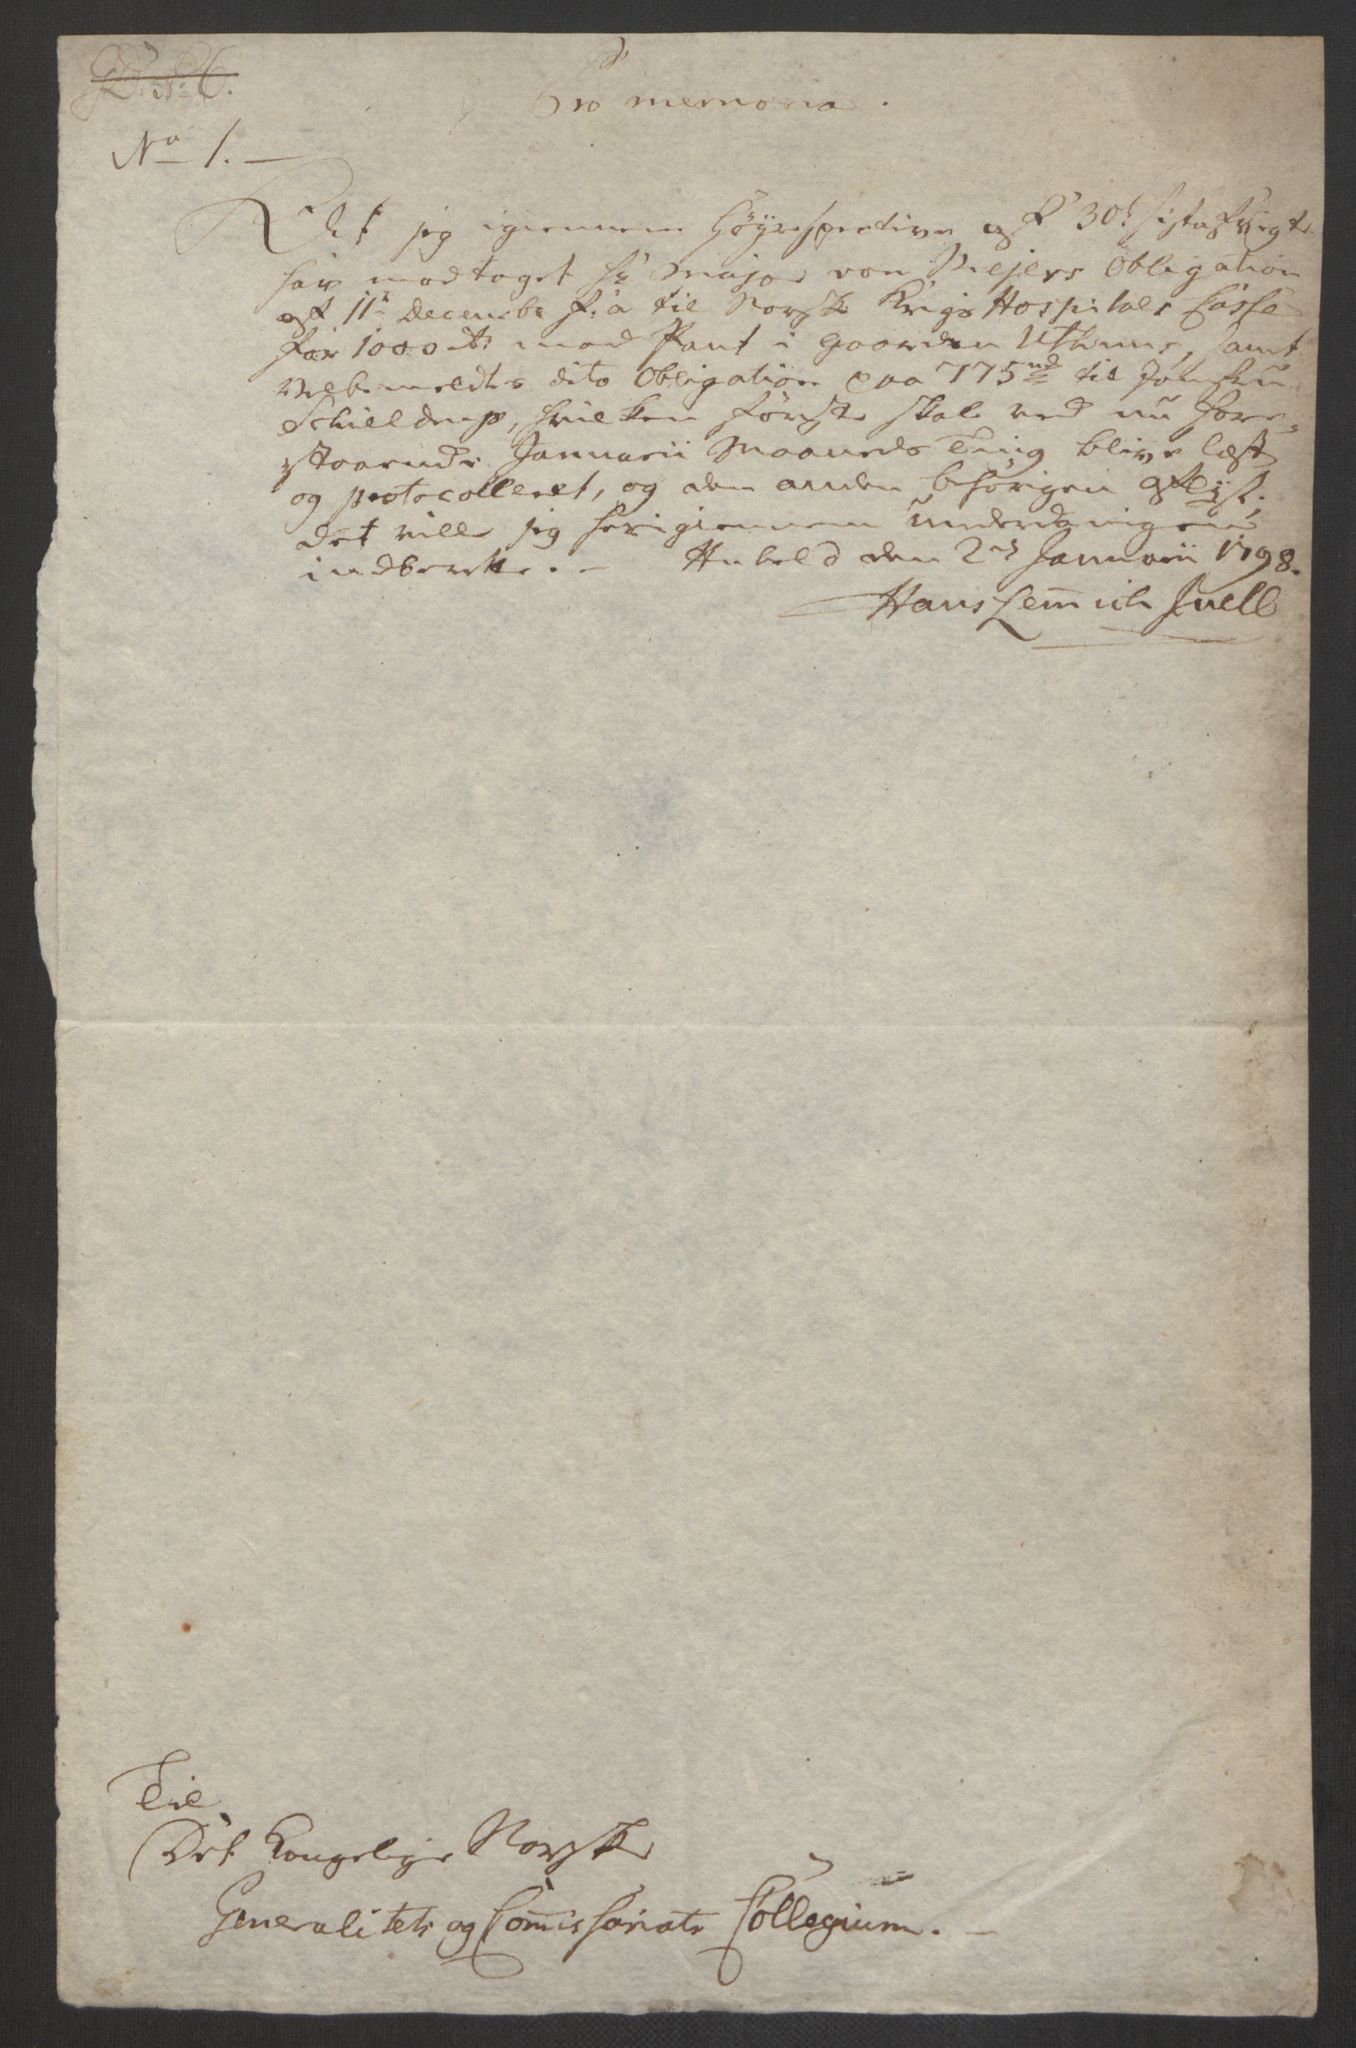 Pro memoria.
No 1.
At jeg igiennem Höyrespective af 30t sistafvigt
har modtaget Hr Major von Meyers Obligation
af 11te Decembr f: a til Norske Krigs Hospitals Casse
for 1000 rd mod Pant i Gaarden Uthuus, samt
Velbemeldtes dito Obligation paa 775 til Jomfru
Schielderup, hvilken förste skal ved nu fore-
staaende Januarii Maaneds Ting blive læst
og protocolleret, og den anden behörigen aflyst;
det ville jeg herigiennem underdanigen
indberette. - den 2den Januarii 1798.
Hans Lemmich Juell
Til
Det Kongelige Norske
Generalitets og Commissariats Collegium. -